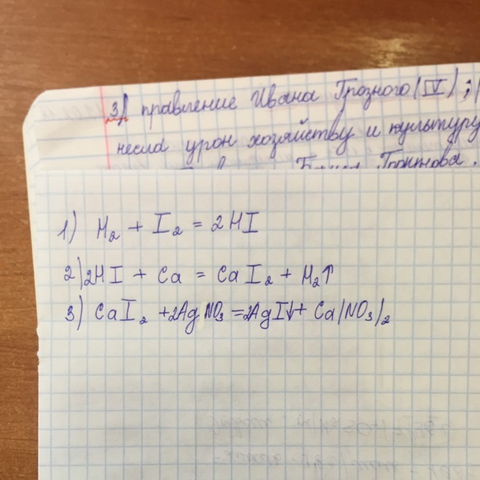 3) правление Ивана Грозного (IV);
несла урон хозяйству и культуру
1) H₂ + I₂ = 2HI
2) 2HI + Ca = CaI₂ + H₂↑
3) CaI₂ + 2AgNO₃ = 2AgI↓ + Ca(NO₃)₂